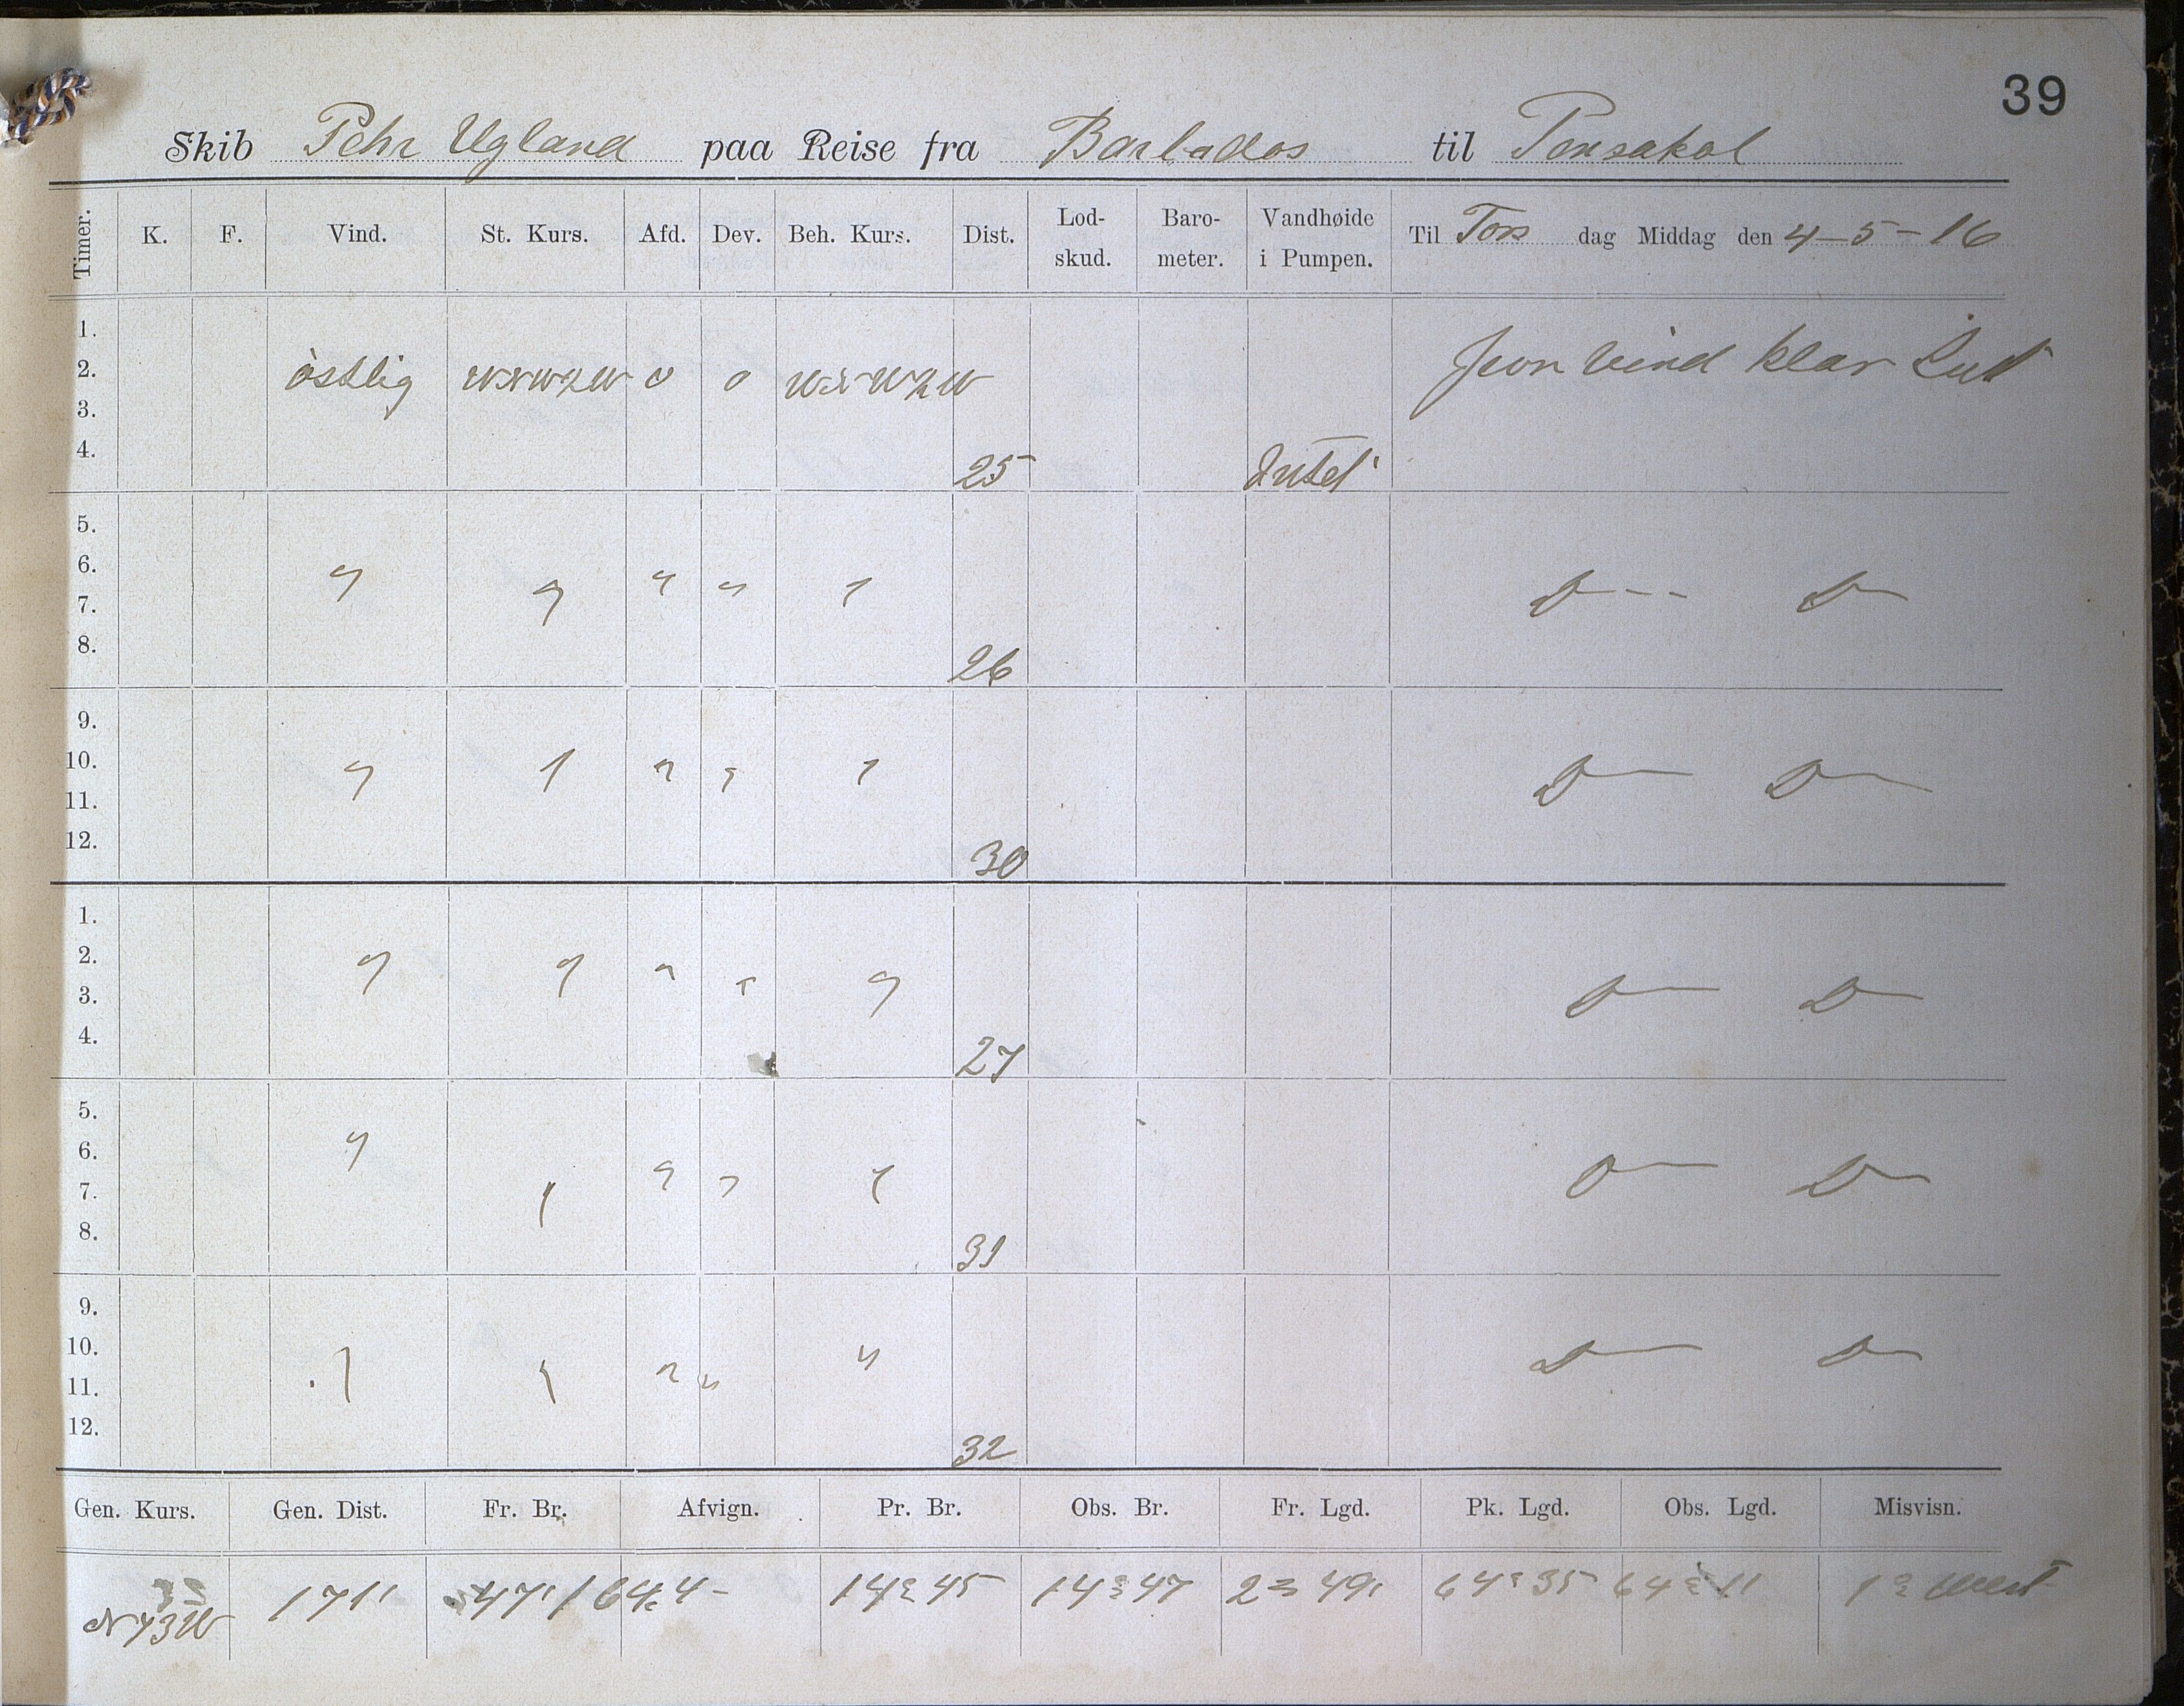 39
Skib Pehr Ugland paa Reise fra Barbados til Pensakol
Timer. K. F. Vind. St. Kurs. Afd. Dev. Beh. Kurs. Dist. Lod-skud. Baro-meter. Vandhøide i Pumpen. Til Tors dag Middag den 4-5-16
1.
2. östlig WNW½W 0 0 WNW½W vind klar Luft
3.
4. 25 Intet
5.
6. " " " " " D-- D—
7.
8. 26
9.
10. " " " " " D— D—
11.
12. 30
1.
2. " " " " " D— D—
3.
4. 27
5.
6. " " " " " D— D—
7.
8. 31
9.
10. " " " " " D— D—
11.
12. 32
Gen. Kurs. Gen. Dist. Fr. Br. Afvign. Pr. Br. Obs. Br. Fr. Lgd. Pk. Lgd. Obs. Lgd. Misvisn.
N73W 171' 47' 164,4- 14° 45 14° 47 2° 49' 64° 35 64° 11 1° West